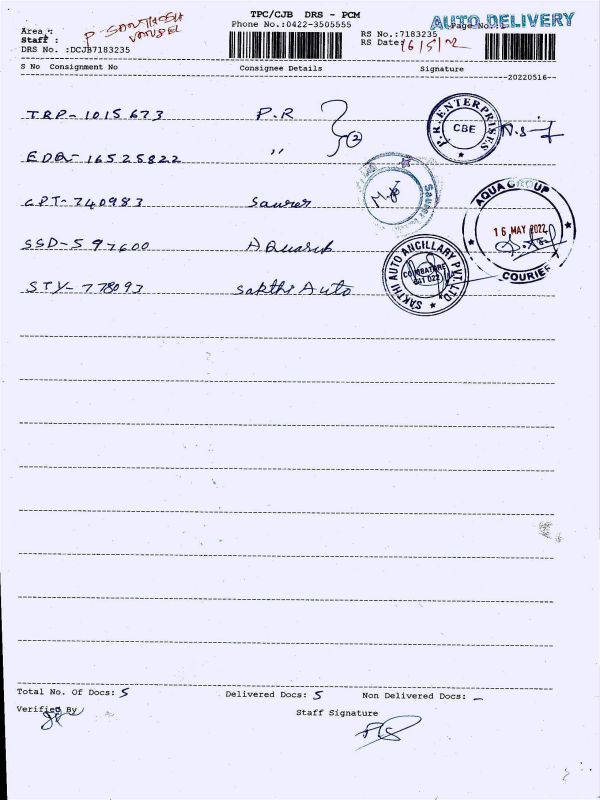 TPC/CJB DRS - PCM
AUTO DELIVERY
Area :
P SANTHOSH
Phone No.:0422-3505555
Page No.:1
Staff :
RS No.:7183235
DRS No. :DCJB7183235
RS Date:
16/5/22
S No Consignment No
Consignee Details
Signature
--20220516--
TRP-1015673
P.R
2
P.R. ENTERPRISES
CBE
EDA-16525822
"
Saurer
CPT-740983
Saurer
AQUA GROUP
16 MAY 2022
COURIER
SSD-597600
Aquasub
SAKTHI AUTO ANCILLARY PVT. LTD.
COIMBATORE
641 022
STY-778093
Sakthi Auto
Total No. Of Docs: 5
Delivered Docs: 5
Non Delivered Docs: -
Verified By
Staff Signature